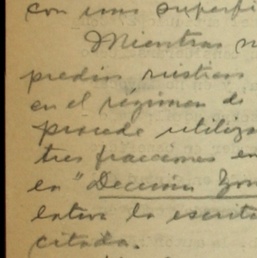 con una superfi
Mientras
predios rústicos
en el régimen de
procede utiliza
tres fracciones en
la "Decisión
lativa la escrit
citada.